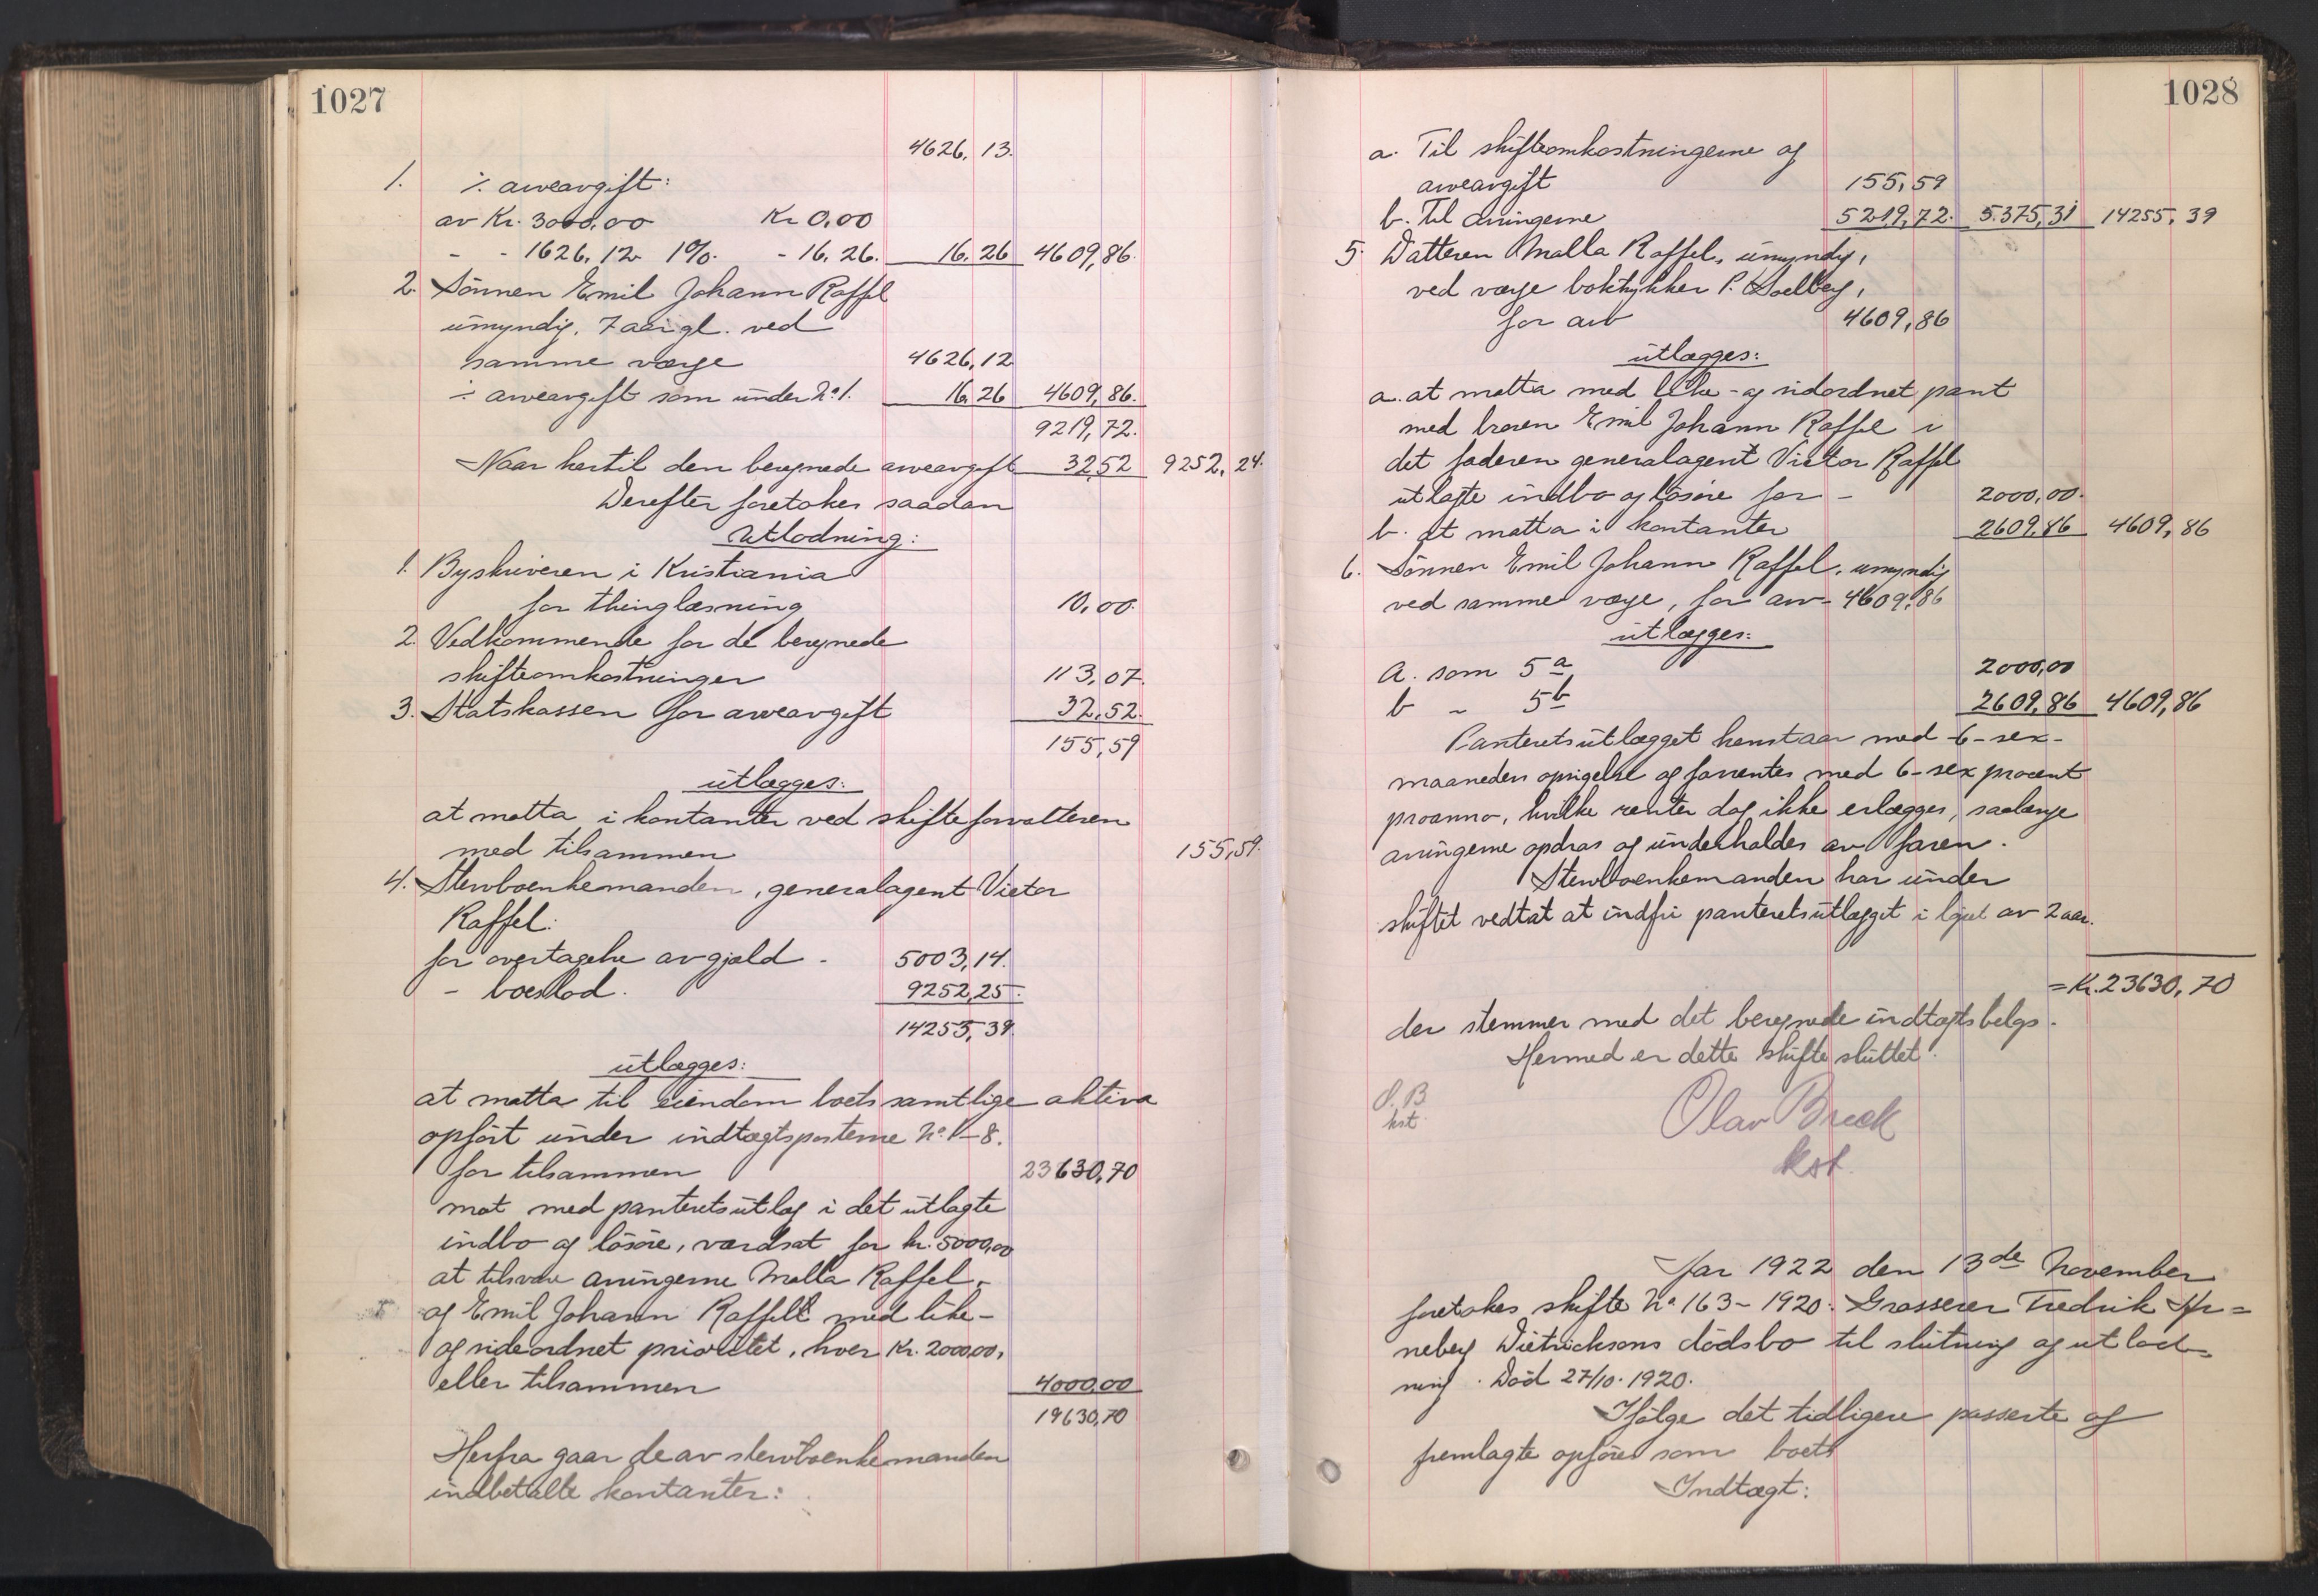 1027
4626,13.
1. ⁒ arveavgift:
av Kr. 3000,00 Kr 0,00
- - 1626,12 1%. - 16,26. 16,26 4609,86.
2. Sönnen Emil Johann Raffel
umyndig, 7 aar gl. ved
samme værge 4626,12
⁒ arveavgift som under No 1. 16,26 4609,86.
9219,72.
Naar hertil den beregnede arveavgift 32,52 9252,24.
Derefter foretokes saadan
Utlodning:
1. Byskriveren i Kristiania
for thinglæsning 10,00.
2. Vedkommende for de beregnede
skifteomkostninger 113,07.
3. Statskassen for arveavgift 32,52.
155,59
utlægges:
at motta i kontanter ved skifteforvalteren
med tilsammen 155,59.
4. Stervboenkemanden, generalagent Victor
Raffel:
for overtagelse av gjæld - 5003,14.
- boeslod. 9252,25.
14255,39.
utlægges:
at motta til eiendom boets samtlige aktiva
opfört under indtægtsposterne No 1-8.
for tilsammen 23630,70
mot med panteretsutlæg i det utlagte
indbo og lösöre, værdsat for kr. 5000,00
at tilsvare arvingerne Malla Raffel,
og Emil Johann Raffell med like-
og sideordnet prioritet, hver Kr. 2000,00,
eller tilsammen 4000,00
19630,70
Herfra gaar de av stervboenkemanden
indbetalte kontanter:
1028
a. Til skifteomkostningerne og
arveavgift 155,59
b. Til arvingerne 5219,72. 5.375,31 14255,39
5. Datteren Malla Raffel, umyndig,
ved værge boktrykker P. Soelberg,
for arv 4609,86
utlægges:
a. at motta med like- og sidordnet pant
med broren Emil Johann Raffel i
det faderen generalagent Victor Raffel
utlagte indbo og lösöre for - 2000,00.
b. at motta i kontanter 2609,86 4609,86
6. Sönnen Emil Johann Raffel, umyndig
ved samme værge, for arv - 4609,86
utlægges:
a. som 5a 2000,00
b - 5b 2609,86 4609,86
Panteretsutlægget henstaar med 6-sex-
maaneders opsigelse og forrentes med 6-sex procent
proanno, hvilke renter dog ikke erlægges, saalænge
arvingerne opdras og underholdes av faren.
Stervboenkemanden har under
skiftet vedtat at indfri panteretsutlægget i löpet av 2 aar.
= Kr. 23630,70
der stemmer med det beregnede indtægtsbelöp.
Hermed er dette skifte sluttet.
O. B
kst.
Olav Breck
kst.
Aar 1922 den 13de November
foretokes skifte No 163-1920. Grosserer Fredrik Ar=
neberg Dietrichsons dödsbo til slutning og utlod-
ning. Död 27/10. 1920.
Ifölge det tidligere passerte og
fremlagte opföres som boets
Indtægt: